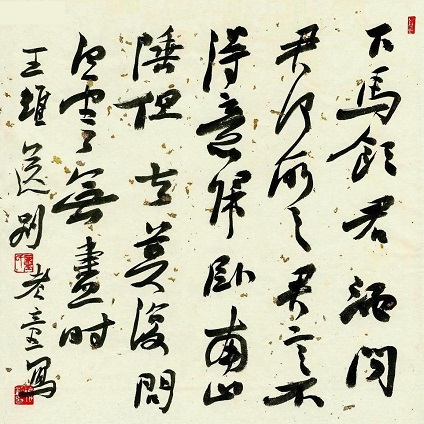 下馬飲君酒問
君何所之君言不
得意歸臥南山
陲但去莫復問
白雲無盡時
王維送別 老童寫